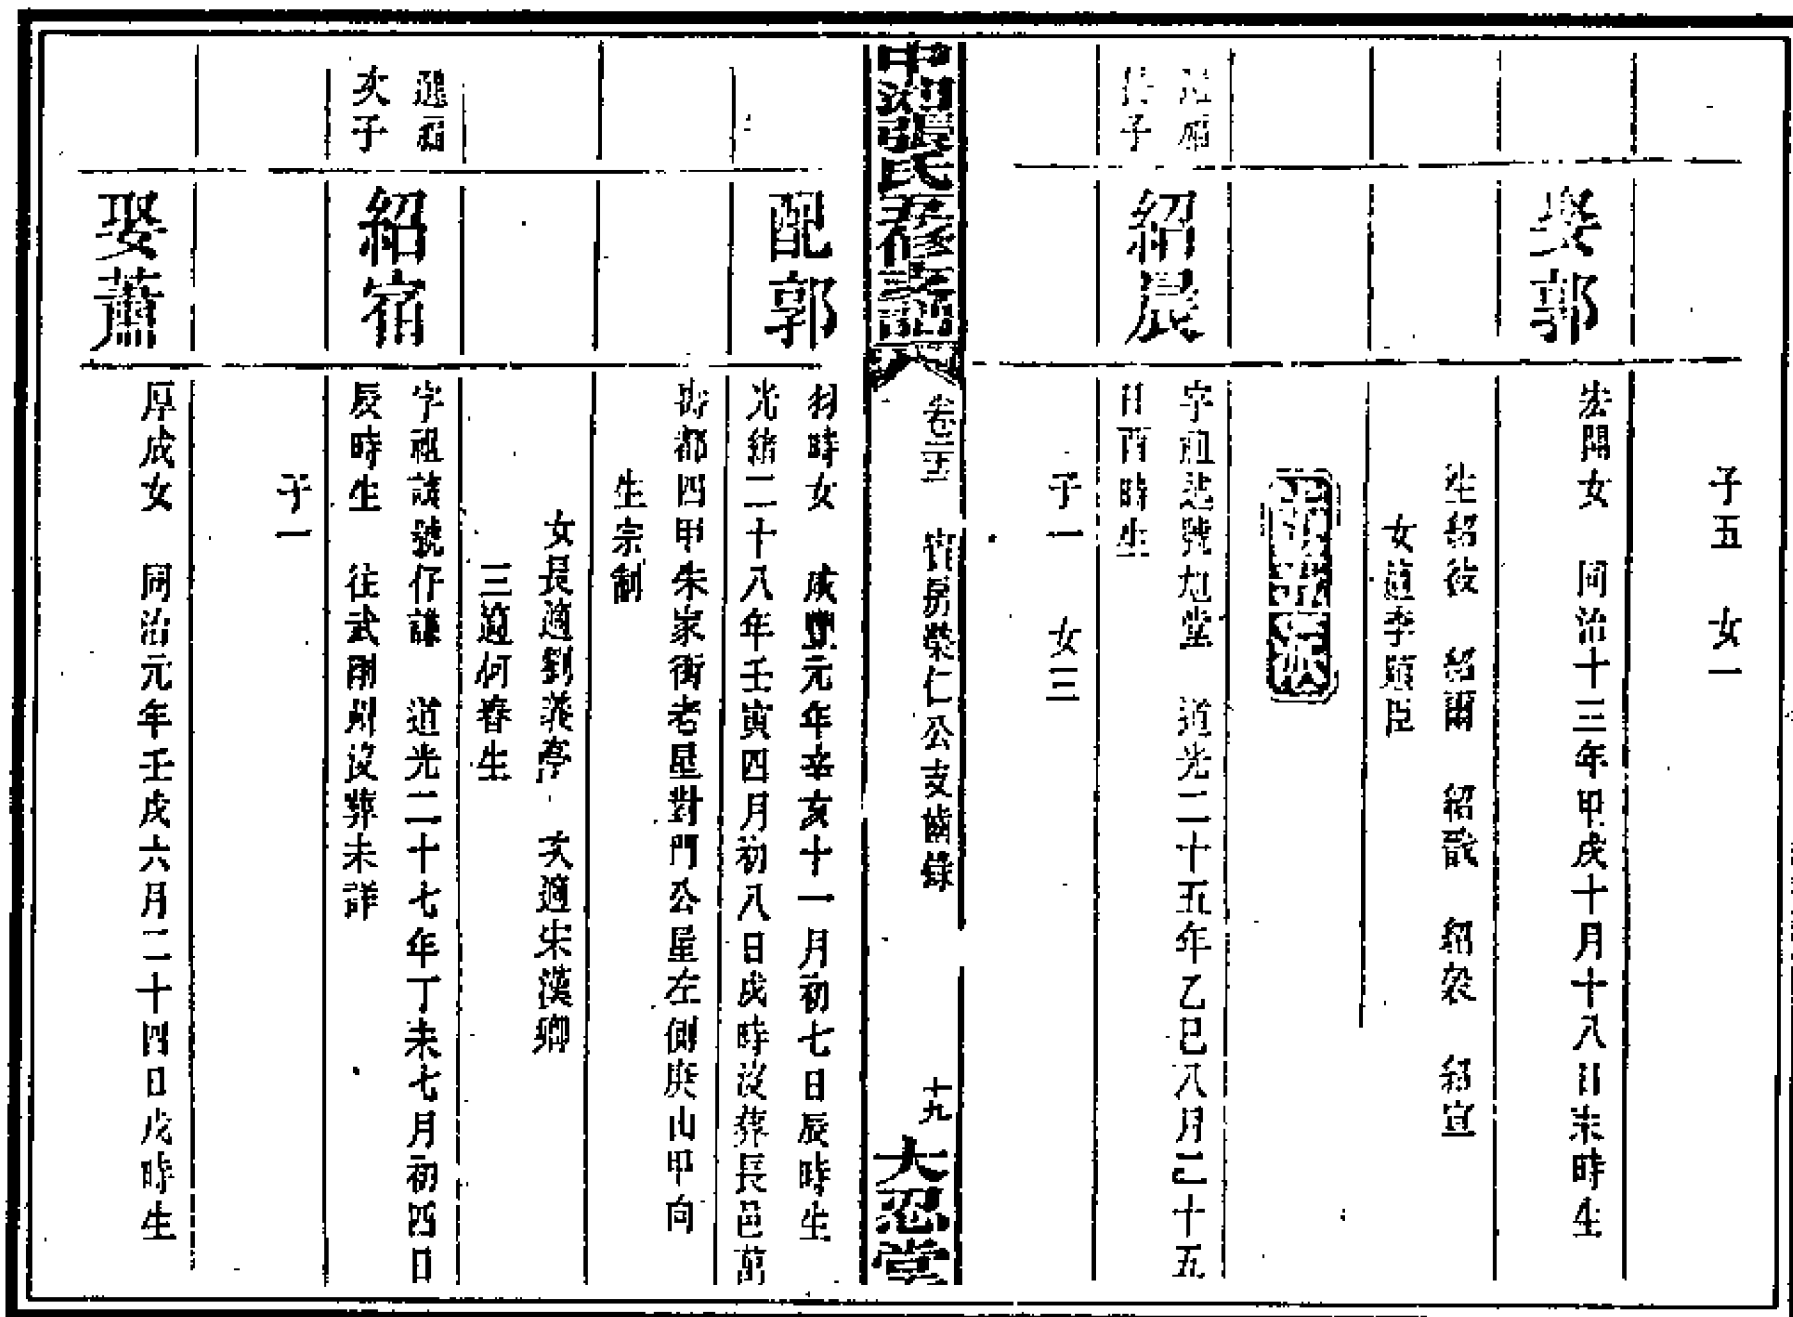 子五　女一
娶郭
宏開女　同治十三年甲戌十月十八日未時生
生紹　紹爾　紹　紹袞　紹宣
女適李臣
派
長子
紹晨
字祖號旭堂　道光二十五年乙巳八月二十五
日酉時生
子一　女三
張氏五修族譜
卷二十五　房榮仁公支齒錄
十九
大忍堂
配郭
羽時女　咸豐元年辛亥十一月初七日辰時生
光緒二十八年壬寅四月初八日戌時沒葬長邑萬
街都四甲朱家衝老屋對門公屋左側庚山甲向
生宗制
女長適劉義亭　次適宋漢卿
三適何春生
次子
紹宿
字祖號仔謙　道光二十七年丁未七月初四日
辰時生　往武剛州沒葬未詳
子一
娶蕭
厚成女　同治元年壬戌六月二十四日戊時生